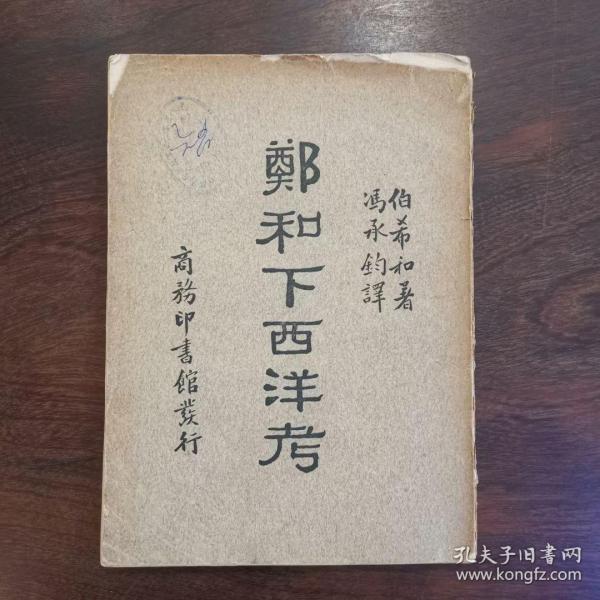 伯希和著
馮承鈞譯
鄭和下西洋考
商務印書館發行
孔夫子旧書网
www.kongfz.com